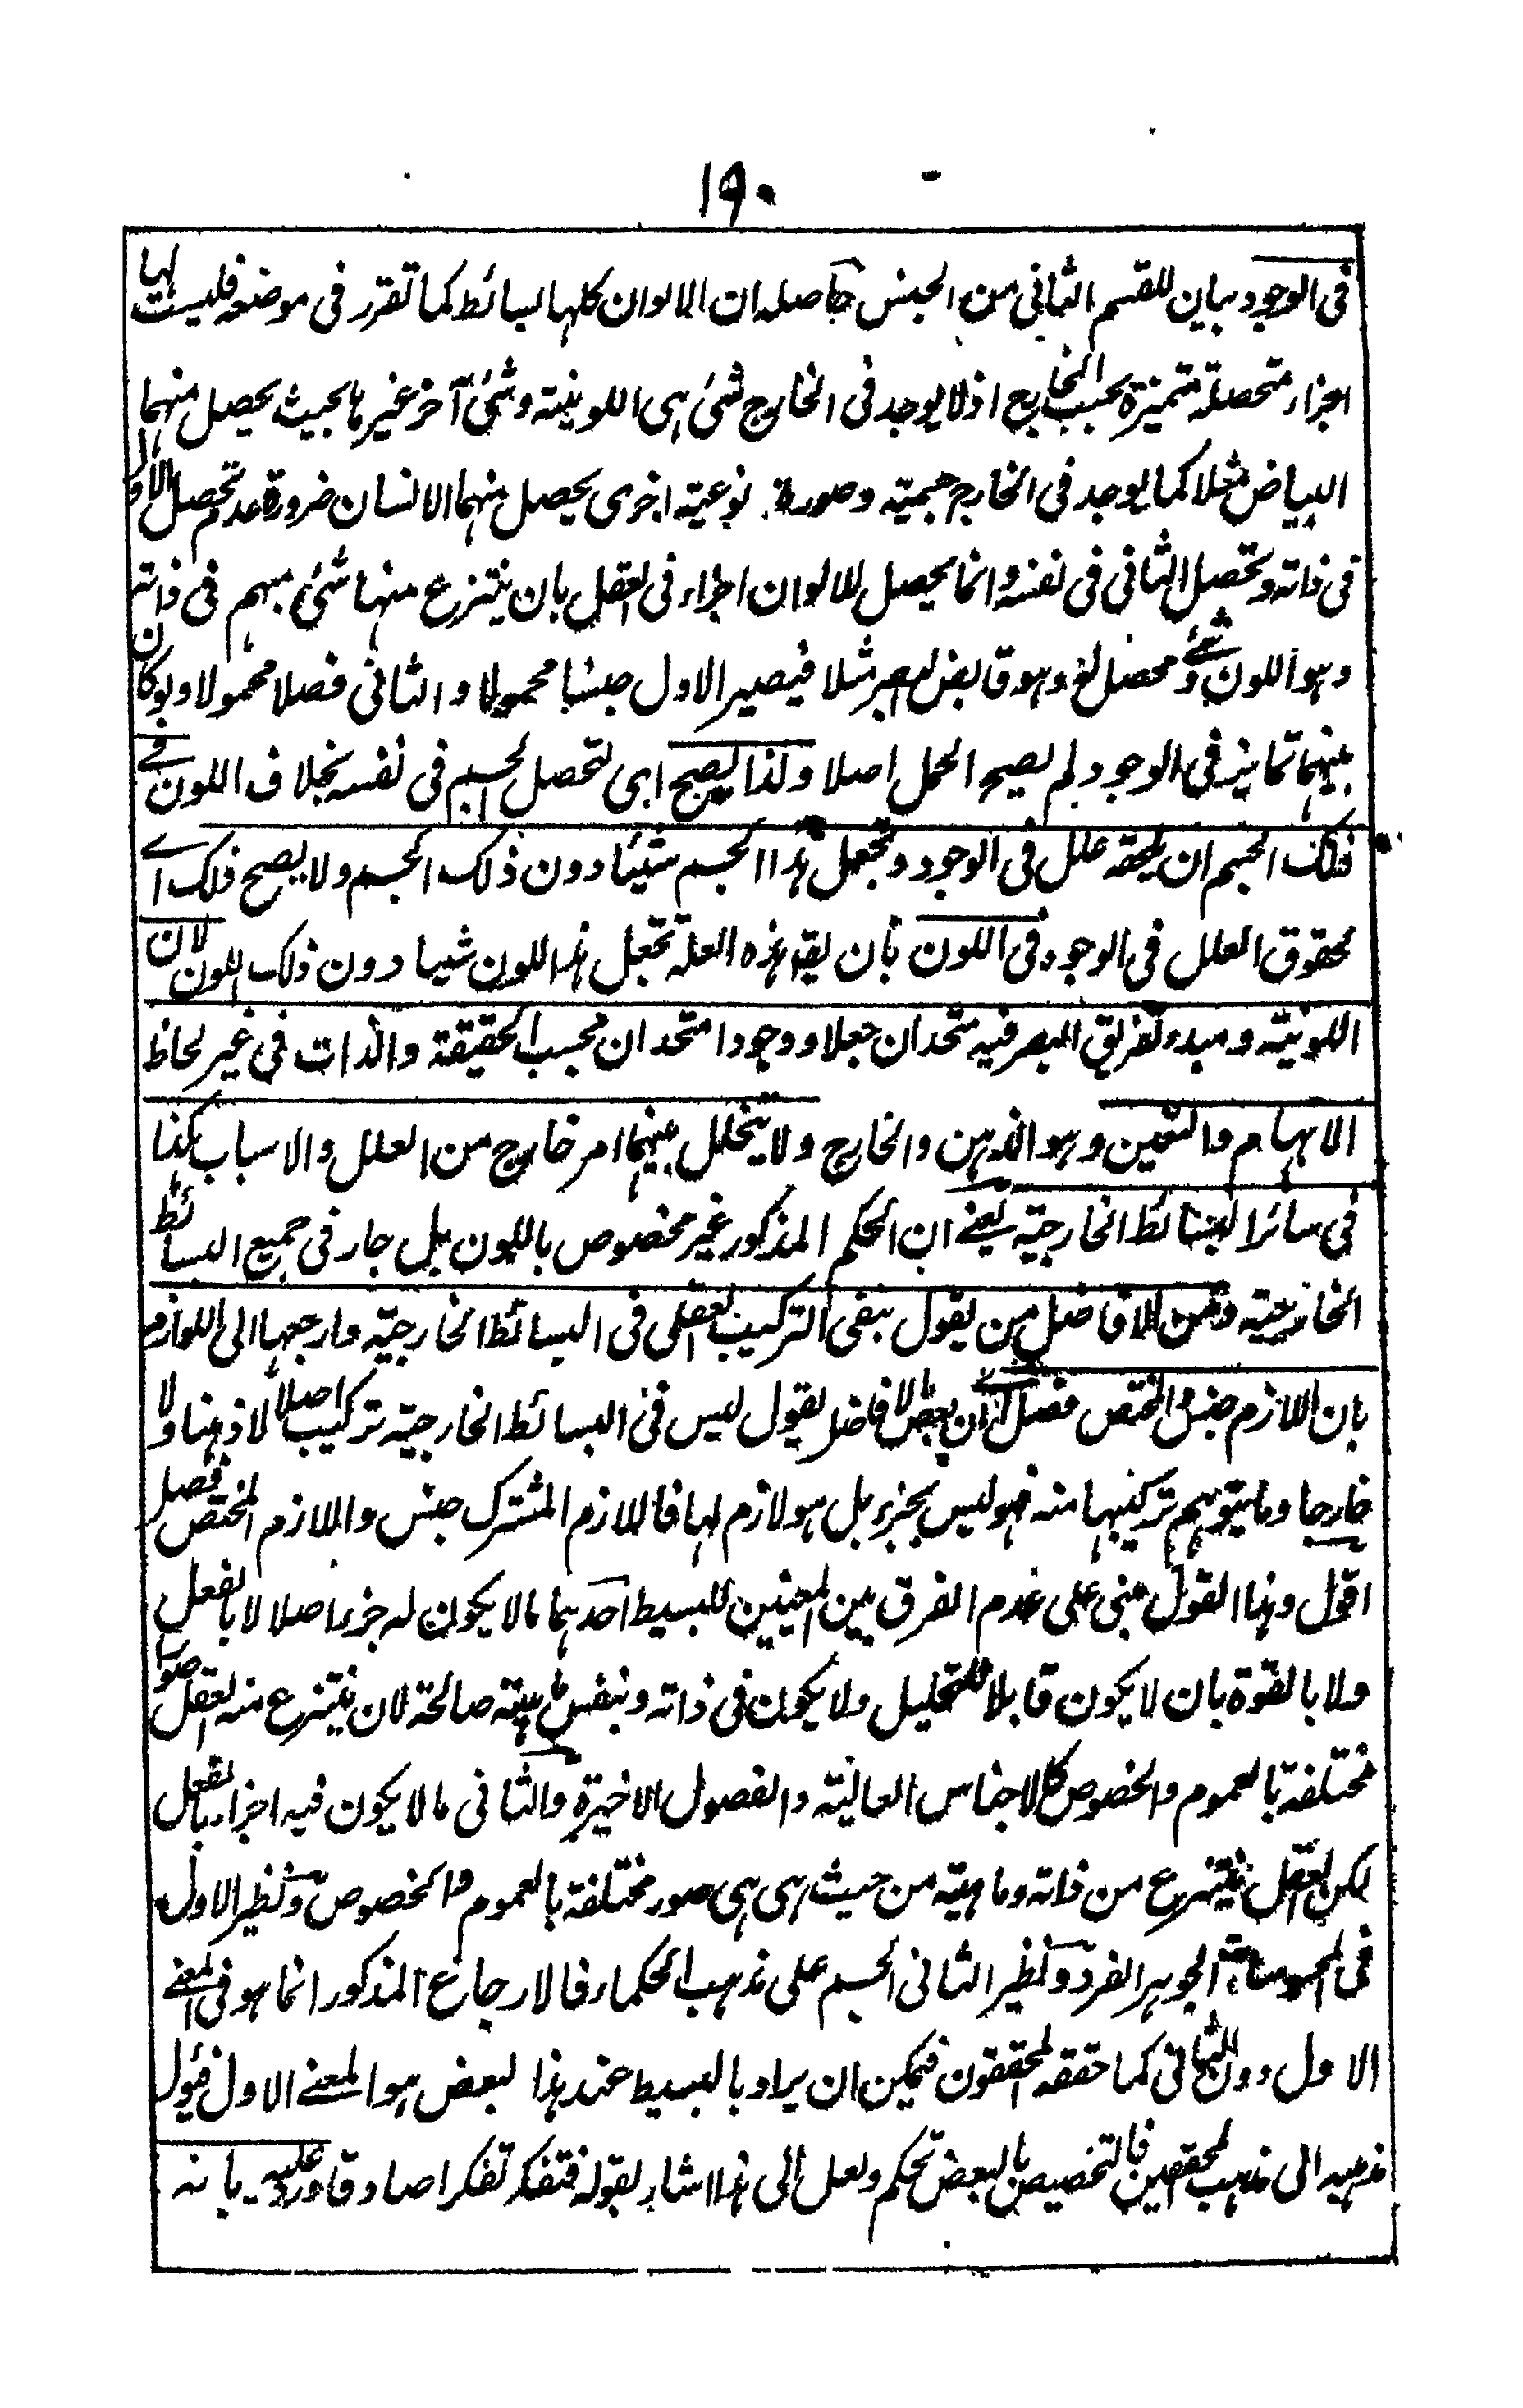 ١٩٠
فى الوجود بيان للقسم الثانى من الجنس حاصله ان الالوان كلها بسائط كما تقرر فى موضعه فليست لها
اجزاء متحصلة متميزة بحسب الخارج اذ لا يوجد فى الخارج شئ هى اللونية و شئ آخر غيرها بحيث يحصل منهما
البياض مثلا كما يوجد فى الخارج جسمية و صورة نوعية اخرى يحصل منهما الانسان ضرورة عدم تحصل الاول
فى ذاته و تحصل الثانى فى نفسه و انما يحصل للالوان اجزاء فى العقل بان ينتزع منها شئ مبهم فى ذاته
و هو اللون و شئ محصل له و هو قابض البصر مثلا فيصير الاول جنسا محمولا و الثانى فصلا محمولا و لو كان
بينهما تمايز فى الوجود لم يصح الحمل اصلا و لذا يصح اى لتحصل الجسم فى نفسه بخلاف اللون فى
ذلك الجسم ان يلحقه علل فى الوجود و تجعل هذا الجسم شيئا دون ذلك الجسم و لا يصح ذلك اے
لحوق العلل فى الوجود فى اللون بان يقه هذه العلة تجعل هذا اللون شيا دون ذلك اللون لان
اللونية و مبدء تفريق البصر فيه متحدان جعلا و وجودا متحدان بحسب الحقيقة و الذات فى غير لحاظ
الابهام و التعين و هو الذهن و الخارج و لا يتخلل بينهما امر خارج من العلل و الاسباب كذا
فى سائر البسائط الخارجية يعنے ان الحكم المذكور غير مخصوص باللون بل جار فى جميع البسائط
الخارجية و من الافاضل من يقول بنفى التركيب العقلى فى البسائط الخارجية و ارجعها الى اللوازم
بان اللازم جنس و المختص فصل اے ان بعض الافاضل يقول ليس فى البسائط الخارجية تركيب اصلا لا ذهنا و لا
خارجا و ما يتوهم تركيبها منه فهو ليس بجزء بل هو لازم لها فاللازم المشترك جنس و اللازم المختص فصل
اقول و هذا القول مبنى على عدم الفرق بين المعنيين للبسيط احدهما ما لا يكون له جزء اصلا لا بالفعل
و لا بالقوة بان لا يكون قابلا للتحليل و لا يكون فى ذاته و بنفس ماهيته صالحة لان ينتزع منه العقل صورا
مختلفة بالعموم و الخصوص كالاجناس العالية و الفصول الاخيرة و الثانى ما لا يكون فيه اجزاء بالفعل
لكن العقل ينتزع من ذاته و ماهيته من حيث هى هى صور مختلفة بالعموم و الخصوص و نظير الاول
فى المحسوسات الجوهر الفرد و نظير الثانى الجسم على مذهب الحكماء فالارجاع المذكور انما هو فى المعنے
الاول دون الثانى كما حققه المحققون فيمكن ان يراد بالبسيط عند هذا البعض هو المعنے الاول فيؤل
مذهبه الى مذهب المحققين فالتخصيص بالبعض تحكم و لعل الى هذا اشار بقوله فتفكر تفكرا صادقا و رد عليه بانه